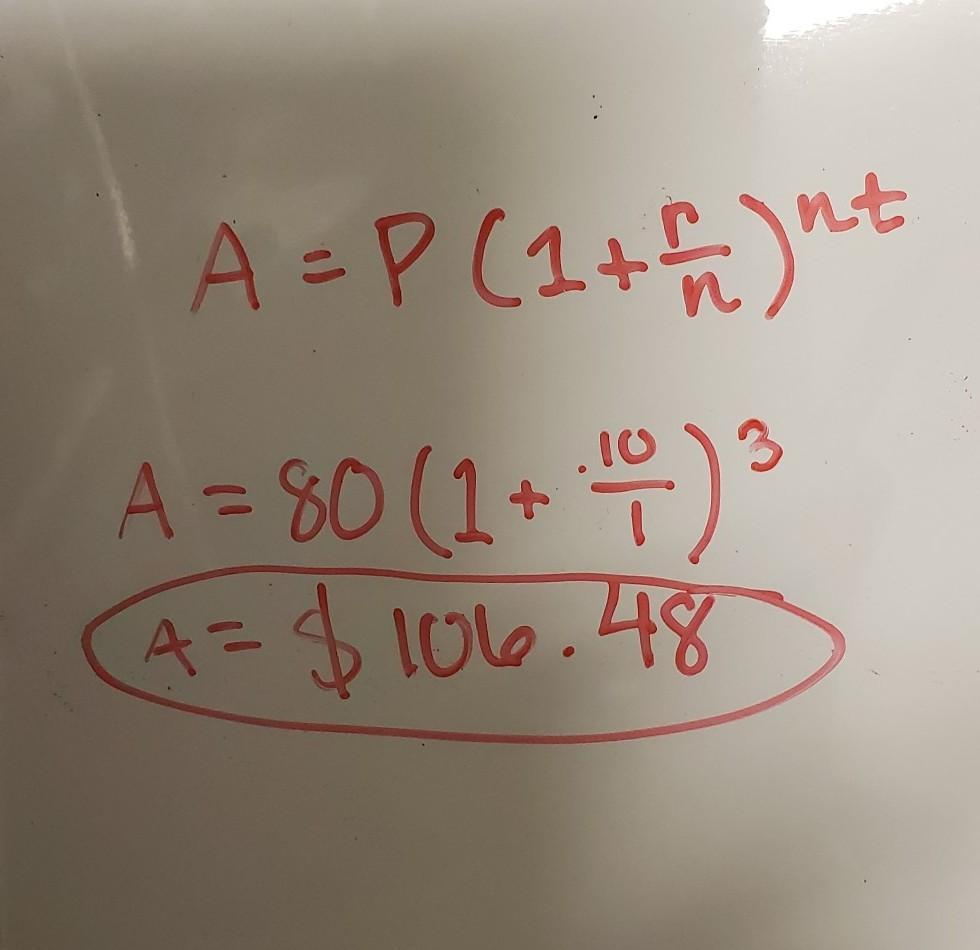 A = P (1 + r/n)^nt
A = 80 (1 + .10/1)^3
A = $ 106.48